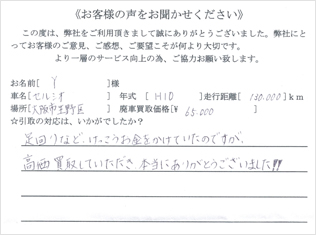 《お客様の声をお聞かせください》
この度は、弊社をご利用頂きまして誠にありがとうございました。弊社にとってお客様のご意見、ご感想、ご要望こそが何より大切です。
より一層のサービス向上の為、ご協力お願い致します。
お名前[ Y ]様
車名[セルシオ 年式 [ H10 ]走行距離[ 130.000 ]km
場所[大阪市生野区 ] 廃車買取価格[¥ 65.000 ]
☆引取の対応は、いかがでしたか?
足回りなど、けっこうお金をかけていたのですが、
高価買取していただき 本当にありがとうございました!!